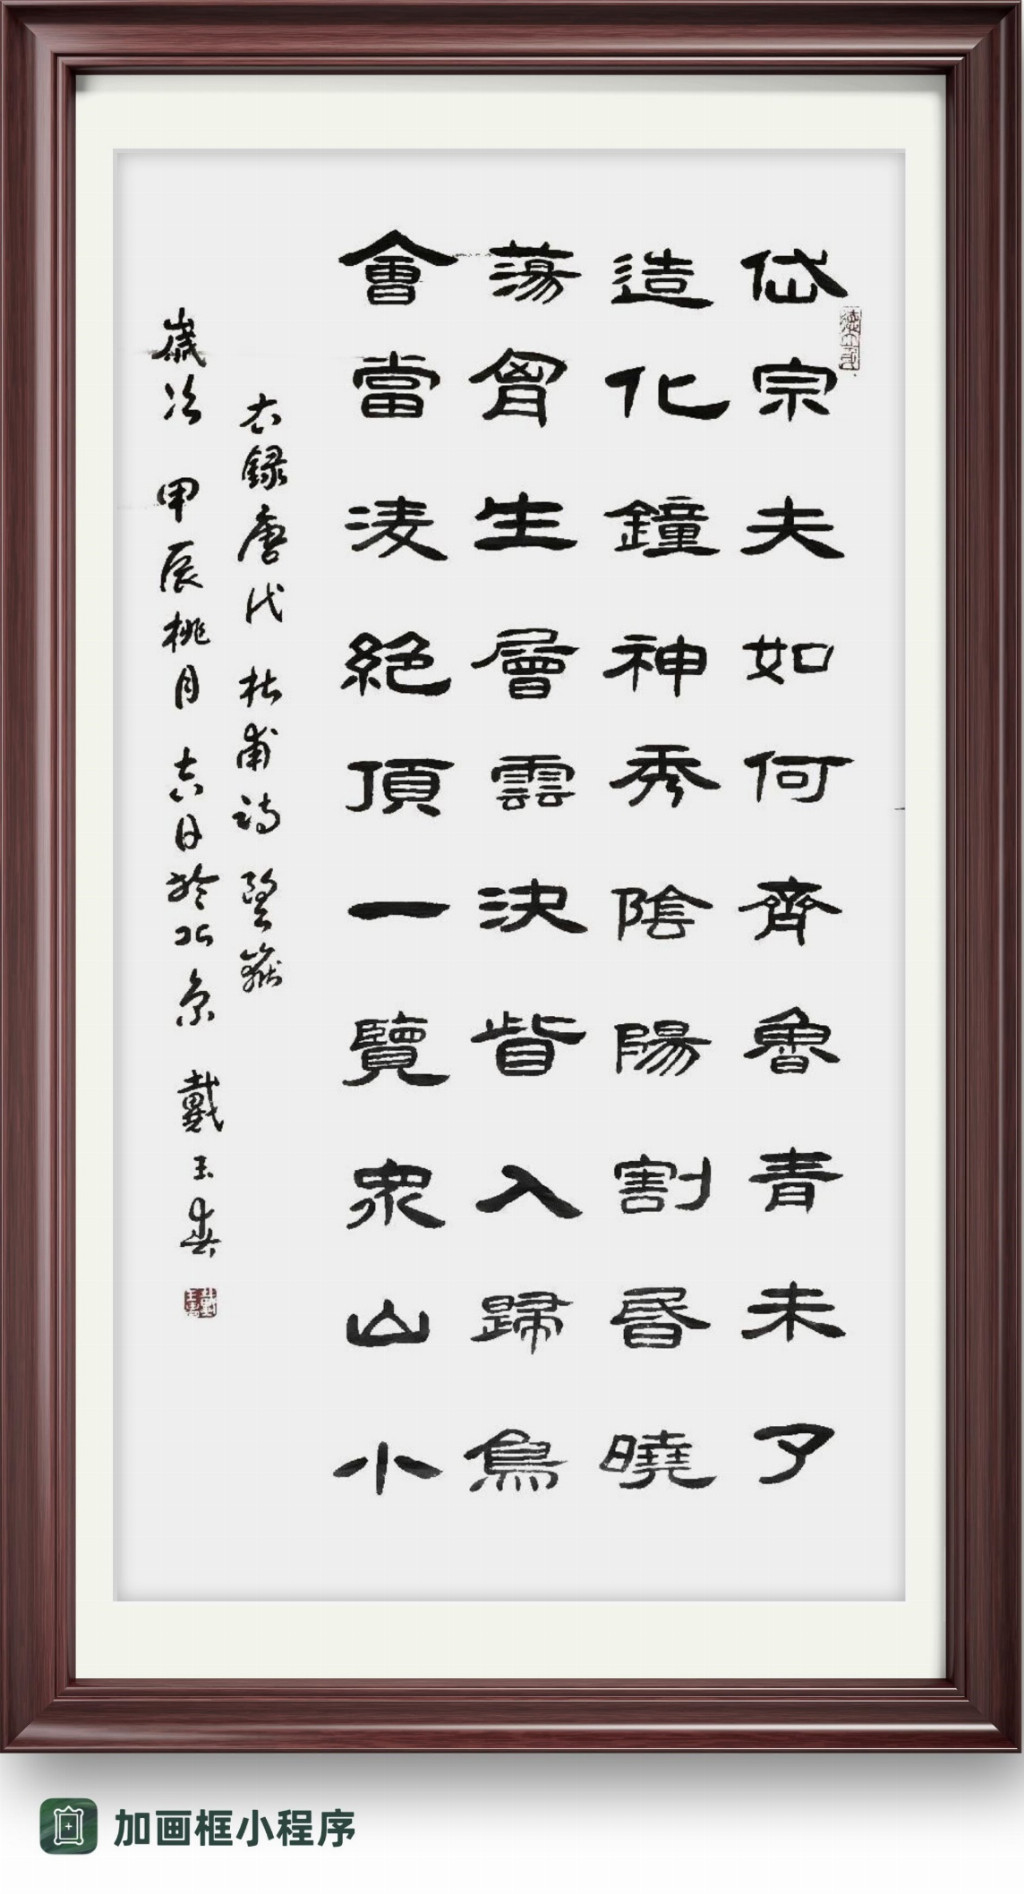 岱宗夫如何齊魯青未了
造化鐘神秀陰陽割昏曉
蕩胷生層雲決眥入歸鳥
會當凌絕頂一覽眾山小
右錄唐代杜甫詩望嶽
歲次甲辰桃月吉日於北京戴玉春
加画框小程序